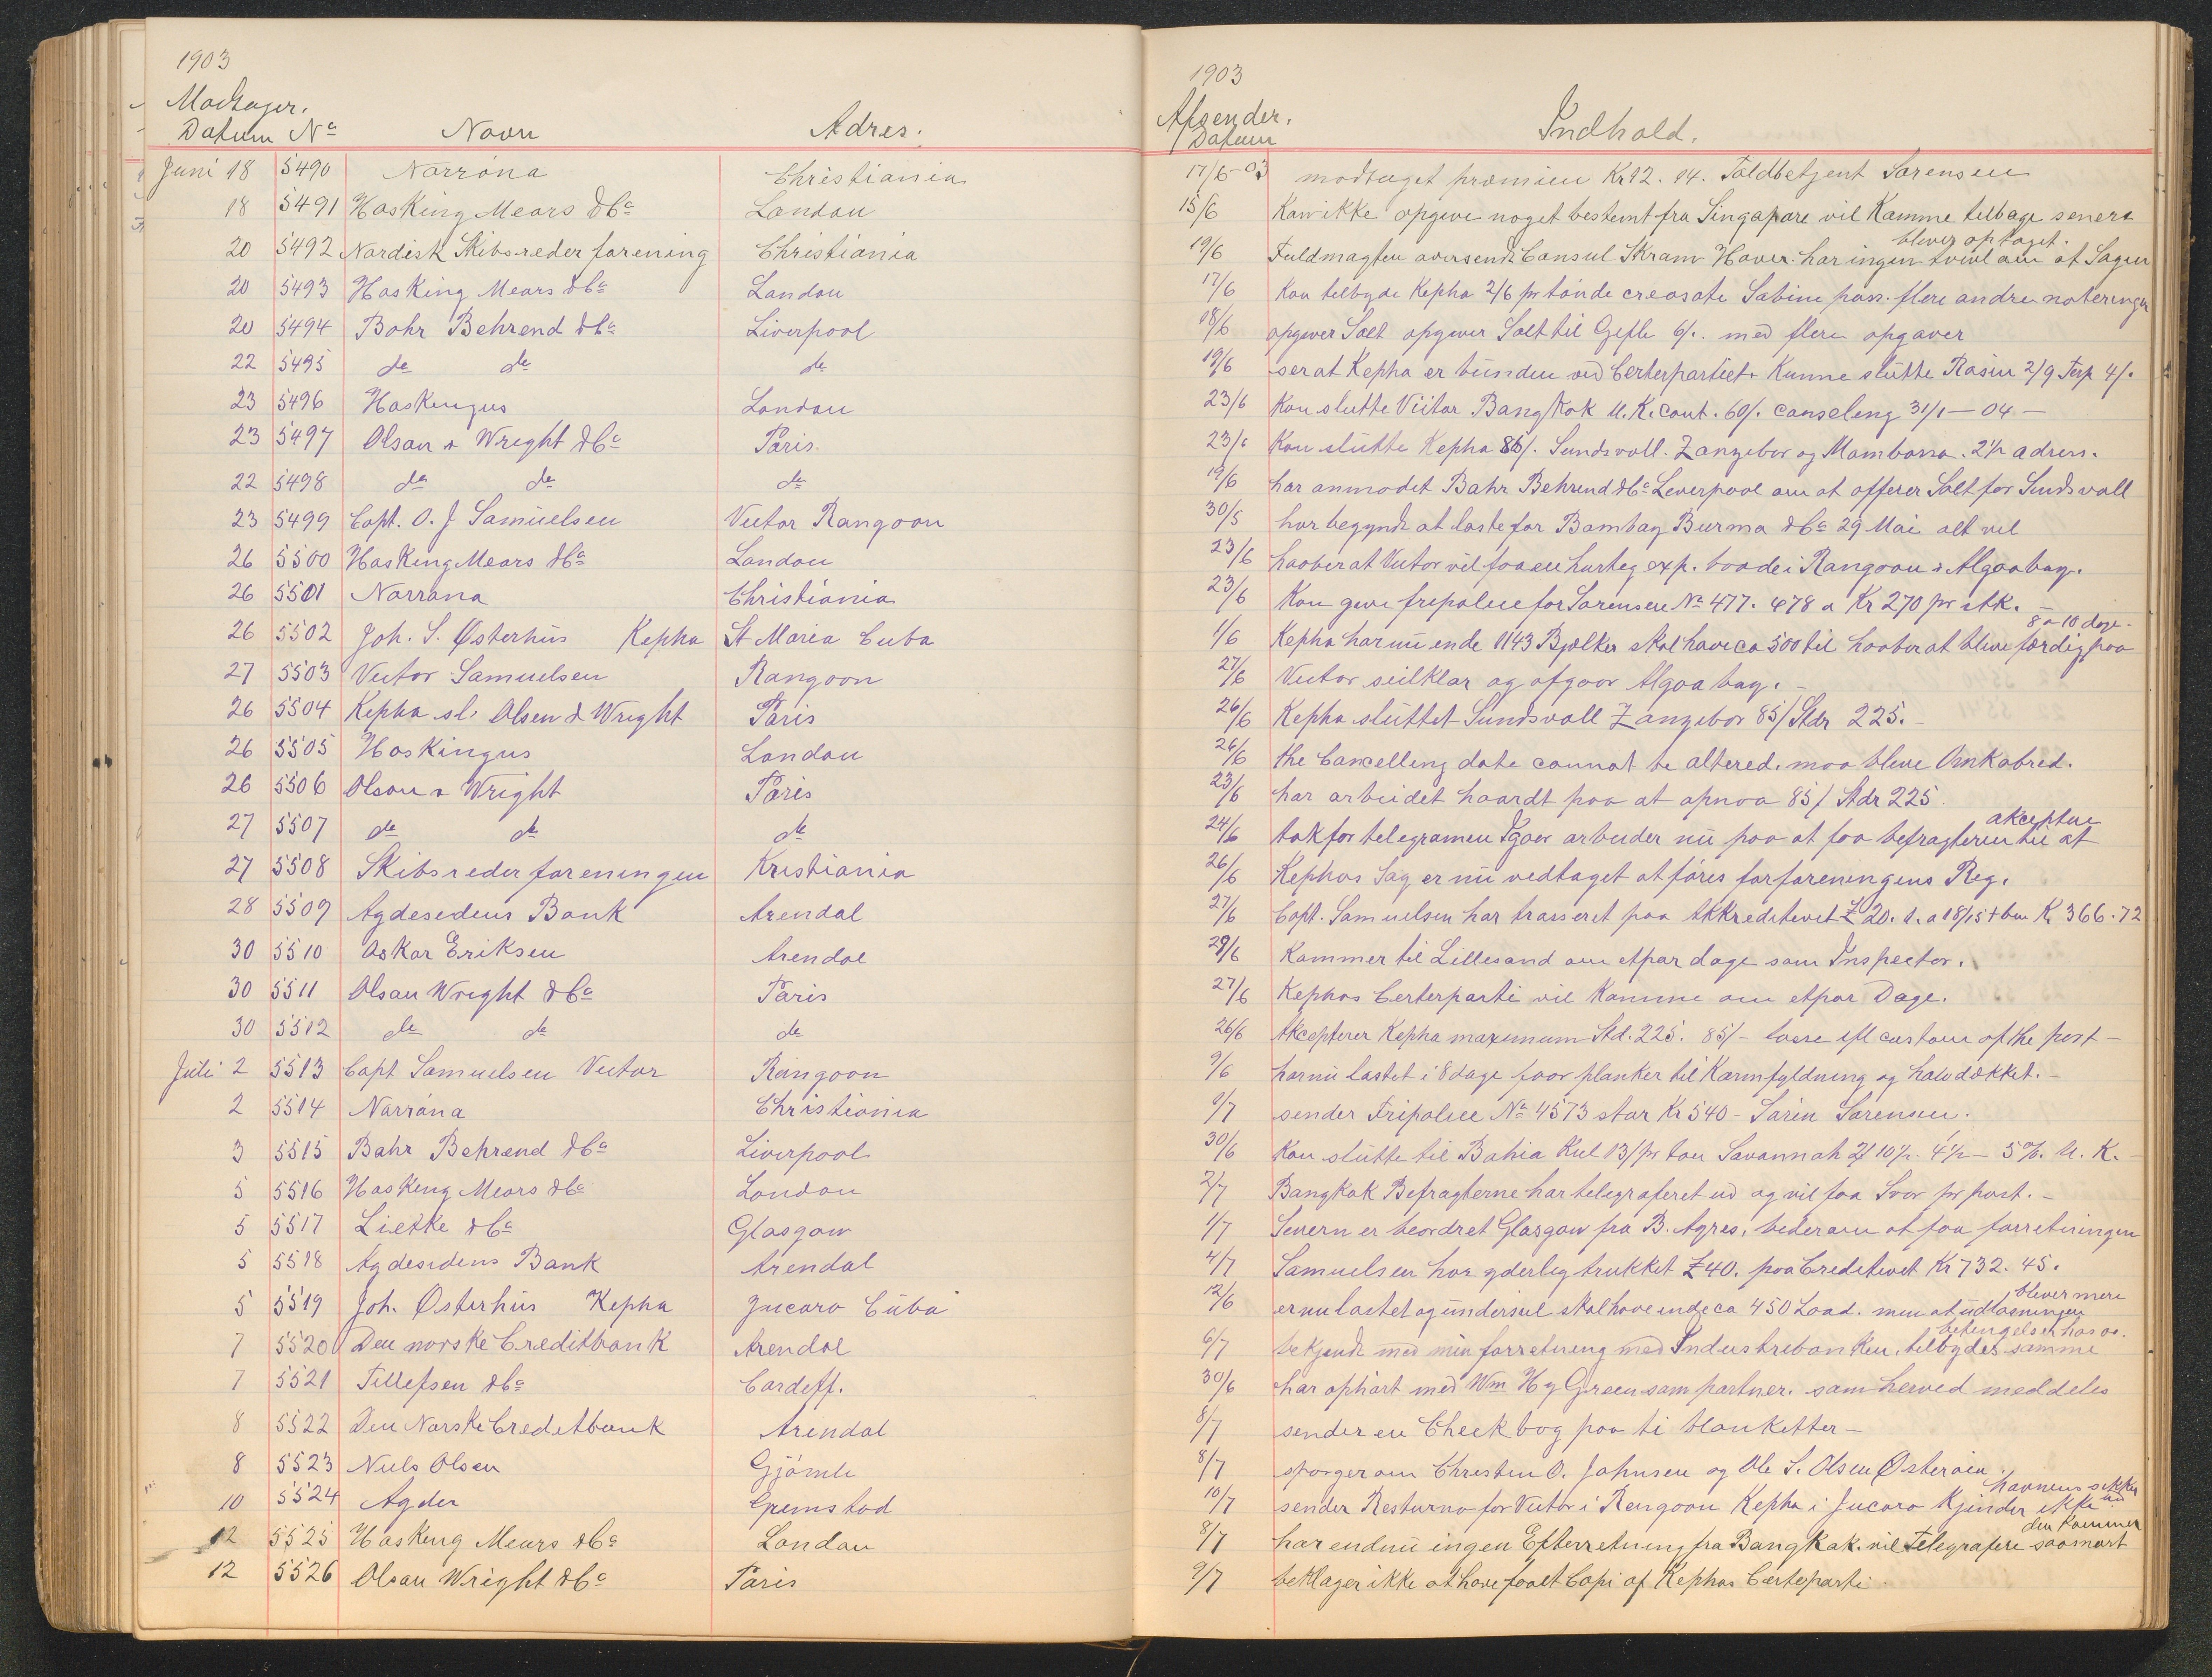 1903
Modtager.
Datum Nº Navn Adres.
Juni 18 5490 Norröna Christiania
18 5491 Hasking Mears & Cº London
20 5492 Nordisk Skibsreder forening Christiania
20 5493 Hasking Mears & Cº London
20 5494 Bahr Behrend & Cº Liverpool
22 5495 do do do
23 5496 Haskingus London
23 5497 Olsan & Wright & Cº Paris
22 5498 do do do
23 5499 Capt. O. J Samuelsen Victor Rangoon
26 5500 Hasking Mears & Cº London
26 5501 Norrøna Christiania
26 5502 Joh. S. Østerhus Kepha St Maria Cuba
27 5503 Victor Samuelsen Rangoon
26 5504 Kepha sl. Olsen & Wright Paris
26 5505 Haskingus London
26 5506 Olson & Wright Paris
27 5507 do do do
27 5508 Skibsreder foreningen Kristiania
28 5509 Agdesidens Bank Arendal
30 5510 Oskar Eriksen Arendal
30 5511 Olsan Wright & Cº Paris
30 5512 do do do
Juli 2 5513 Capt Samuelsen Victor Rangoon
2 5514 Norröna Christiania
3 5515 Bahr Behrend & Cº Liverpool
5 5516 Hasking Mears & Cº London
5 5517 Lietke & Cº Glasgow
5 5518 Agdesidens Bank Arendal
5 5519 Joh. Østerhus Kepha Jucaro Cuba
7 5520 Den norske Creditbank Arendal
7 5521 Tillefsen & Cº Cardiff.
8 5522 Den Norske Creditbank Arendal
8 5523 Niels Olsen Gjömle
10 5524 Agder Grimstad
12 5525 Hasking Mears & Cº London
12 5526 Olsan Wright & Cº Paris
1903
Afsender.
Datum Indhold.
17/6-03 modtaget præmien Kr 12. 14. Toldbetjent Sørensen
15/6 Kan ikke opgive noget bestemt fra Singapore vil Komme tilbage senere
bliver optaget.
19/6 Fuldmagten oversendt Consul Skram Havre. har ingen tvivl om at Sagen
17/6 Kan tilbyde Kepha 2/6 pr tönde creosote Sabine pass. flere andre noteringer
18/6 opgiver Salt opgiver Salt til Gefle 6/. med flere opgaver
19/6 ser at Kepha er bunden ved Certepartiet. Kunne slutte Rosin 2/9 Terp 4/.
23/6 Kan slutte Victor Bangkok U.K. cont. 60/. canseling 31/1-04-
23/6 Kan slutte Kepha 86/. Sundsvall. Zanzebar og Mombassa. 2½ adress.
19/6 har anmodet Bahr Behrend & Cº Leverpool om at offerer Salt for Sundsvall
30/5 har begyndt at laste for Bombay Burma & Cº 29 Mai alt vel
23/6 haaber at Victor vil faa en hurtig exp. baade i Rangoon & Algoabay.
23/6 Kan give fripolice for Sørensen Nº 477. 478 a Kr 270 pr stk. -
8 a 10 dage.
1/6 Kepha har nu inde 1143 Bjælker skal have ca 500 til haaber at blive færdig paa
27/6 Victor seilklar og afgaar Algoa bay. -
26/6 Kepha sluttet Sundsvall Zanzebar 85/ Stdr 225.-
26/6 the Cancelling date cannot be altered. maa blive Omkabred.
23/6 har arbeidet haardt paa at opnaa 85/ Stdr 225
akceptere
24/6 tak for telegramen Igaar arbeider nu paa at faa befragteren til at
26/6 Kephas Sag er nu vedtaget at føres for foreningens Reg.
27/6 Capt. Samuelsen har trasseret paa Akkreditivet £ 20. Kr 366.72
29/6 Kommer til Lillesand om etpar dage som Inspector.
27/6 Kephas Certerparti vil Komme om etpar Dage.
26/6 Akcepterer Kepha maximum Std. 225. 85/- losse custom of the port -
9/6 har nu lastet i 8 dage faar planker til Karmfyldning og halvdækket.-
9/7 sender Fripolice Nº 4573 stor Kr 540 - Sørensen.
30/6 Kan slutte til Bahia Kul 13/ pr ton Savannah U.K.
2/7 Bangkok Befragterne har telegraferet ud og vil faa Svar pr post.-
1/7 Severn er beordret Glasgow fra B. Ayres, beder om at faa forretningen
4/7 Samuelsen har yderlig trukket £ 40. paa Creditivet Kr 732. 45.
bliver mere
12/6 er nu lastet og underseil skal have inde ca 450 Load. men at udlosningen
betingelser hos os.
6/7 bekjendt med min forretning med Industribanken, tilbydes samme
30/6 har ophört med Wm Hy Green som partner. som herved meddeles
8/7 sender en Check bog paa ti blanketter -
8/7 spørger om Christen O. Johnsen og Ole S. Olsen Østeröen
havnens sikker
10/7 sender Resturno for Victor i Rangoon Kepha i Jucaro kjender ikke
den kommer
8/7 har endnu ingen Efterretning fra Bangkok. vil telegrafere saasnart
9/7 beklager ikke at have faaet Copi af Kephas Certeparti